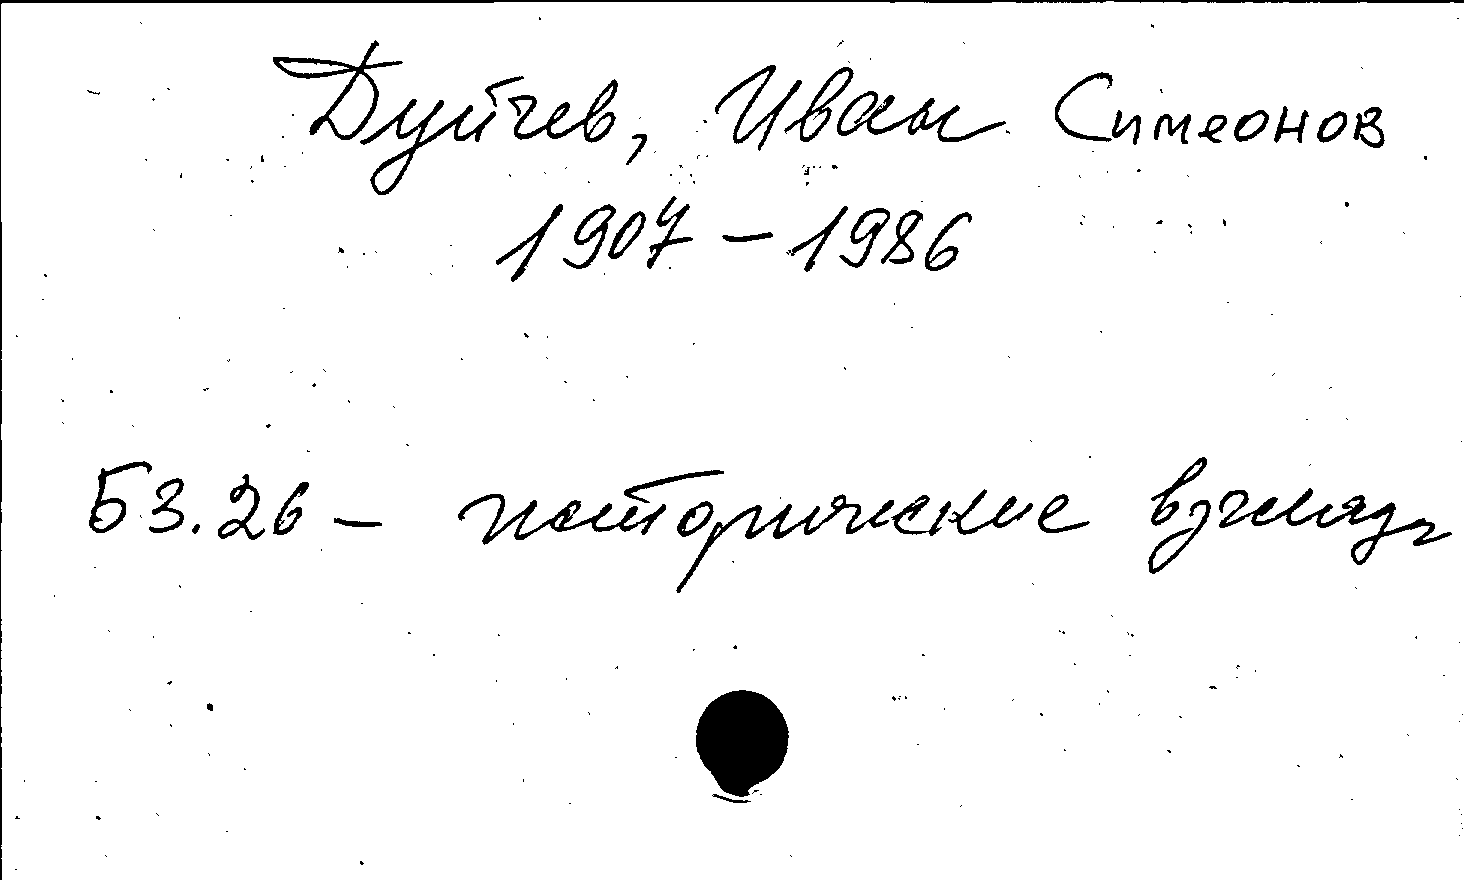 Дуйчев, Иван Симеонов
1907 – 1986
53.26 – исторические взгляды